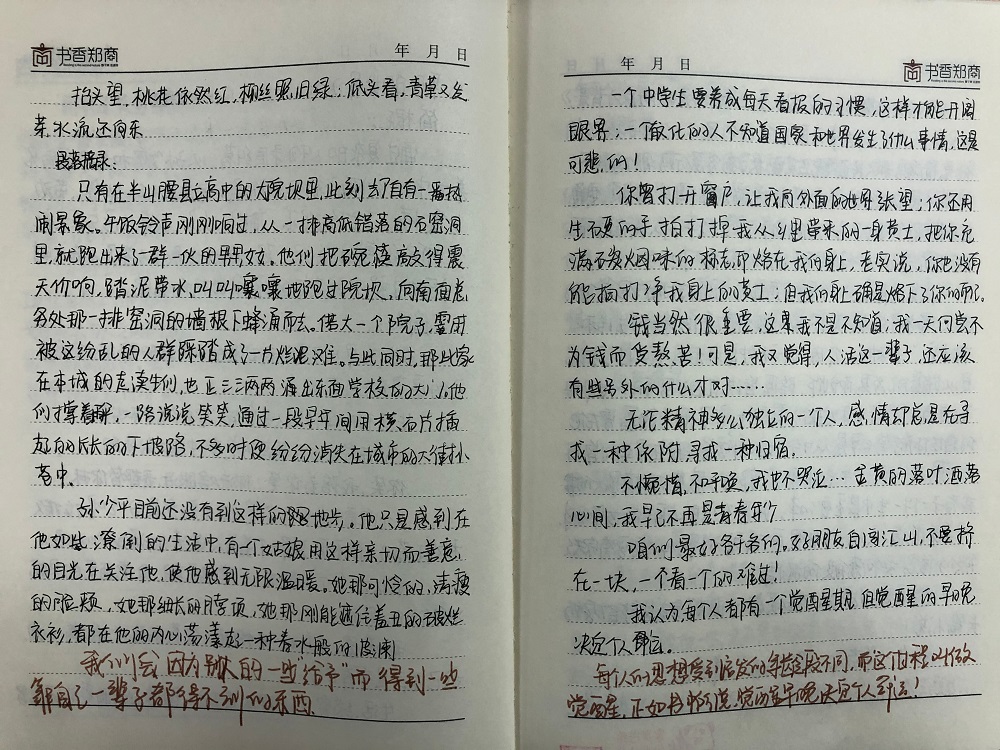 书香郑商
年 月 日
抬头望,桃花依然红,柳丝照旧绿;低头看,青草又发
芽,水流还向东
段落摘录:
只有在半山腰县立高中的大院坝里,此刻却自有一番热
闹景象。午饭铃声刚刚响过,从一排高低错落的石窑洞
里,就跑出来了一群一伙的男男女女。他们把碗筷敲得震
天价响,踏泥带水、叫叫嚷嚷地跑过院坝,向南面总
务处那一排窑洞的墙根下蜂涌而去。偌大一个院子,霎时
被这纷乱的人群踩踏成了一片烂泥滩。与此同时,那些家
在本城的走读生们,也正三三两两涌出东面学校的大门。他
们撑着伞,一路说说笑笑,通过一段早年间用横石片插
起的长长的下坡路,不多时便纷纷消失在城市的大街小
巷中。
孙少平目前还没有到这样的地步。他只是感到在
他如此潦倒的生活中,有一个姑娘用这样亲切而善意
的目光在关注他,使他感到无限温暖。她那可怜的、清瘦
的脸颊,她那细长的脖项,她那刚能遮住羞丑的破烂
衣衫,都在他的内心荡漾起一种春水般的波澜
我们会因为别人的一些"给予"而得到一些
靠自己一辈子都得不到的东西.
年 月 日
书香郑商
一个中学生要养成每天看报的习惯,这样才能开阔
眼界;一个有文化的人不知道国家和世界发生了什么事情,这是
可悲的!
你曾打开窗户,让我向外面的世界张望;你还用
生硬的手拍打掉我从乡里带来的一身黄土,把你充
满炭烟味的标志印烙在我的身上,老实说,你也没有
能拍打净我身上的黄土;但我的身上确是烙下了你的印记。
钱当然很重要,这我不是不知道;我一天何尝不
为钱而受熬苦!可是,我又觉得,人活这一辈子,还应该
有些另外的什么才对……
无论精神多么独立的一个人,感情却总是在寻
找一种依附,寻找一种归宿。
不惋惜,和呼唤,我也不哭泣…金黄的落叶洒落
心间,我早已不再是青春年少
咱们最好各干各的。好朋友自闯江山,不要挤
在一块,一个看一个的难过!
我认为,每个人都有一个觉醒期,但觉醒的早晚
决定个人命运。
每个人的思想受到启发的年龄段不同,而这个过程叫做
觉醒,正如书中所说,觉醒早晚决定个人命运!